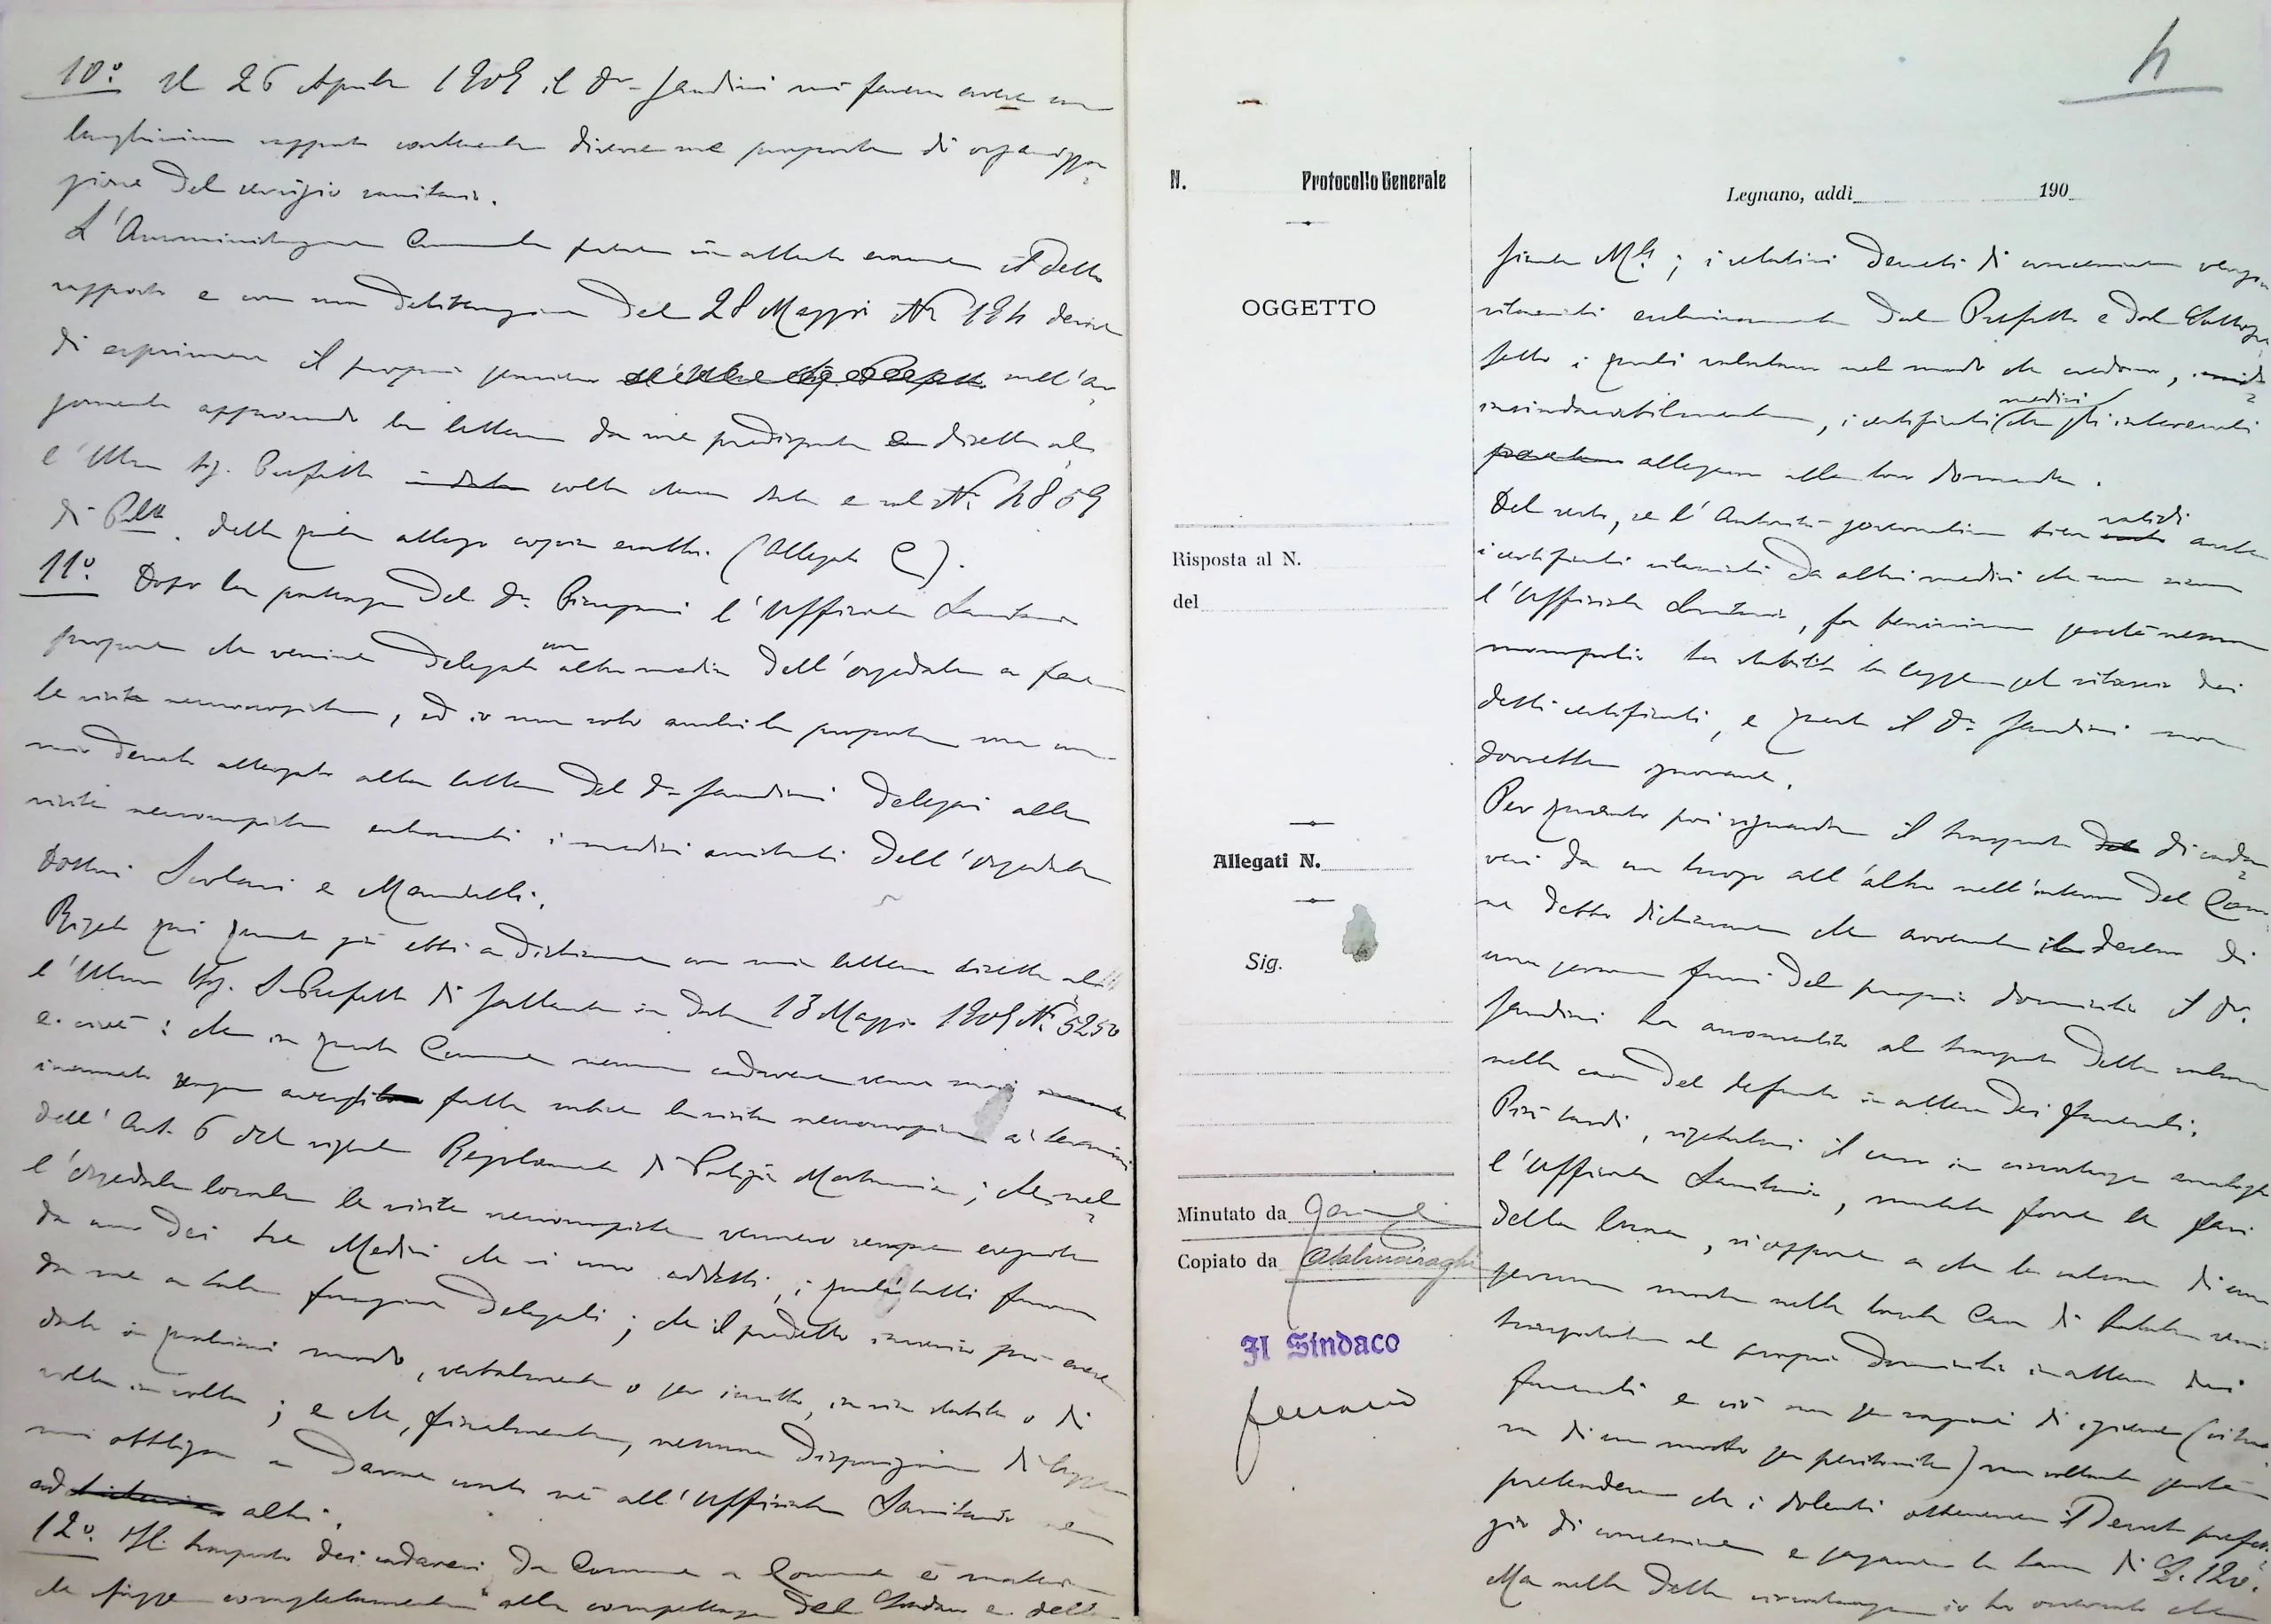 10º Il 26 Aprile 1909 il Dr Gandini mi faceva avere un
lunghissimo rapporto contenente diverse sue proposte di organizza-
zione del servizio sanitario.
L'Amministrazione Comunale prese in attento esame il detto
rapporto e con sua deliberazione del 28 Maggio Nº 194 decise
di esprimere il proprio pensiero nell'ar-
gomento approvando la lettera da me predisposta e diretta al-
l'Illmo Sig. Prefetto in data colla stessa data e sul Nº 4859
di Prot. della quale allego copia esatta. (Allegato C).
11º Dopo la partenza del Dr. l'Ufficiale Sanitario
propose che venisse delegato un altro medico dell'ospedale a fare
le visite necroscopiche, ed io non solo accolsi la proposta ma con
mio decreto allegato alla lettera del Dr Gandini delegai alle
visite necroscopiche entrambi i medici assistenti dell'Ospedale
Dottori Scolari e Mandelli.
Ripeto qui quanto già ebbi a dichiarare con mia lettera diretta al-
l'Illmo Sig. S. Prefetto di Gallarate in data 13 Maggio 1909 Nº 5250
e cioè: che in questo Comune nessun cadavere venne mai
inumato senza avergli fatta subire la visita necroscopica ai termini
dell'Art. 6 del vigente Regolamento di Polizia Mortuaria; che nel-
l'ospedale locale le visite necroscopiche vennero sempre eseguite
da uno dei tre Medici che vi sono addetti, i quali tutti furono
da me a tale funzione delegati; che il predetto incarico può essere
dato in qualsiasi modo, verbalmente o per iscritto, in via stabile o di
volta in volta; e che, finalmente, nessuna disposizione di legge
mi obbliga a darne conto nè all'Ufficiale Sanitario nè
ad altri.
12º Il trasporto dei cadaveri da Comune a Comune è materia
che sfugge completamente alla competenza del Sindaco e della
4
N. Protocollo Generale
OGGETTO
Risposta al N.
del
Allegati N.
Sig.
Minutato da
Copiato da
Il Sindaco
Legnano, addì 190
Giunta Mle; i relativi decreti di concessione vengon
rilasciati esclusivamente dal Prefetto e dal Sottopre-
fetto i quali valutano nel modo che credono,
insindacabilmente, i certificati medici che gli interessati
allegano alla loro domanda.
Del resto, se l'Autorità governativa tien validi anche
i certificati rilasciati da altri medici che non siano
l'Ufficiale Sanitario, fa benissimo perchè nessun
monopolio ha stabilito la legge pel rilascio dei
detti certificati, e questo il Dr Gandini non
dovrebbe ignorare.
Per quanto poi riguarda il trasporto di cada-
veri da un luogo all'altro nell'interno del Comu
ne debbo dichiarare che avvenuto il decesso di
una persona fuori del proprio domicilio il Dr.
Gandini ha acconsentito al trasporto della salma
nella casa del defunto in attesa dei funerali.
Più tardi, ripetutosi il caso in circostanze analoghe
l'Ufficiale Sanitario, mutate forse le fasi
della luna, si oppone a che la salma di una
persona morta nella locale Casa di Salute venisse
trasportata al proprio domicilio in attesa dei
funerali e ciò non per ragioni di igiene (
si di un morto per peritonite) ma soltanto perchè
pretendeva che i dolenti ottenessero il Decreto prefetti-
zio di concessione e pagassero la tassa di L. 120.
Ma nella detta circostanza io ho che